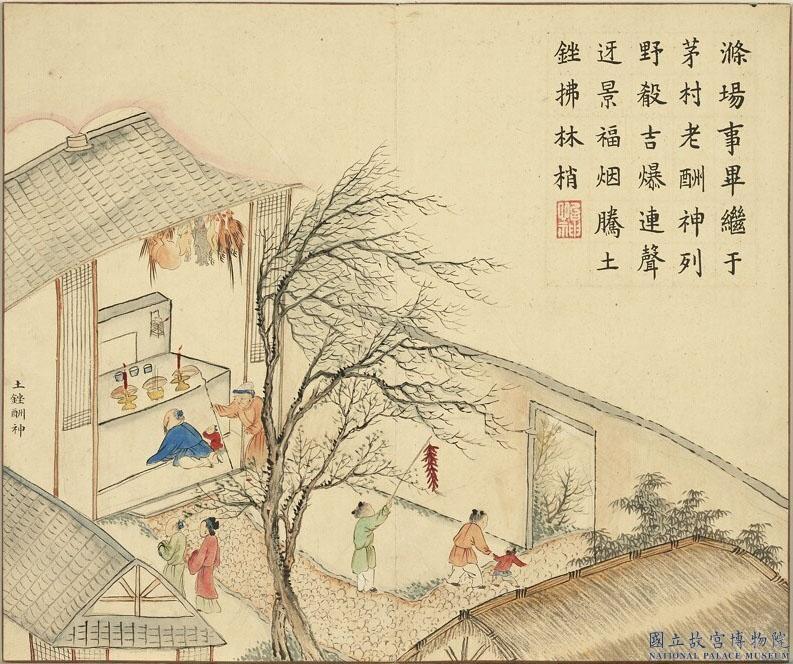 滌場事畢繼于
茅村老酬神列
野殽吉爆連聲
迓景福烟騰土
銼拂林梢
土銼酬神
國立故宮博物院
NATIONAL PALACE MUSEUM